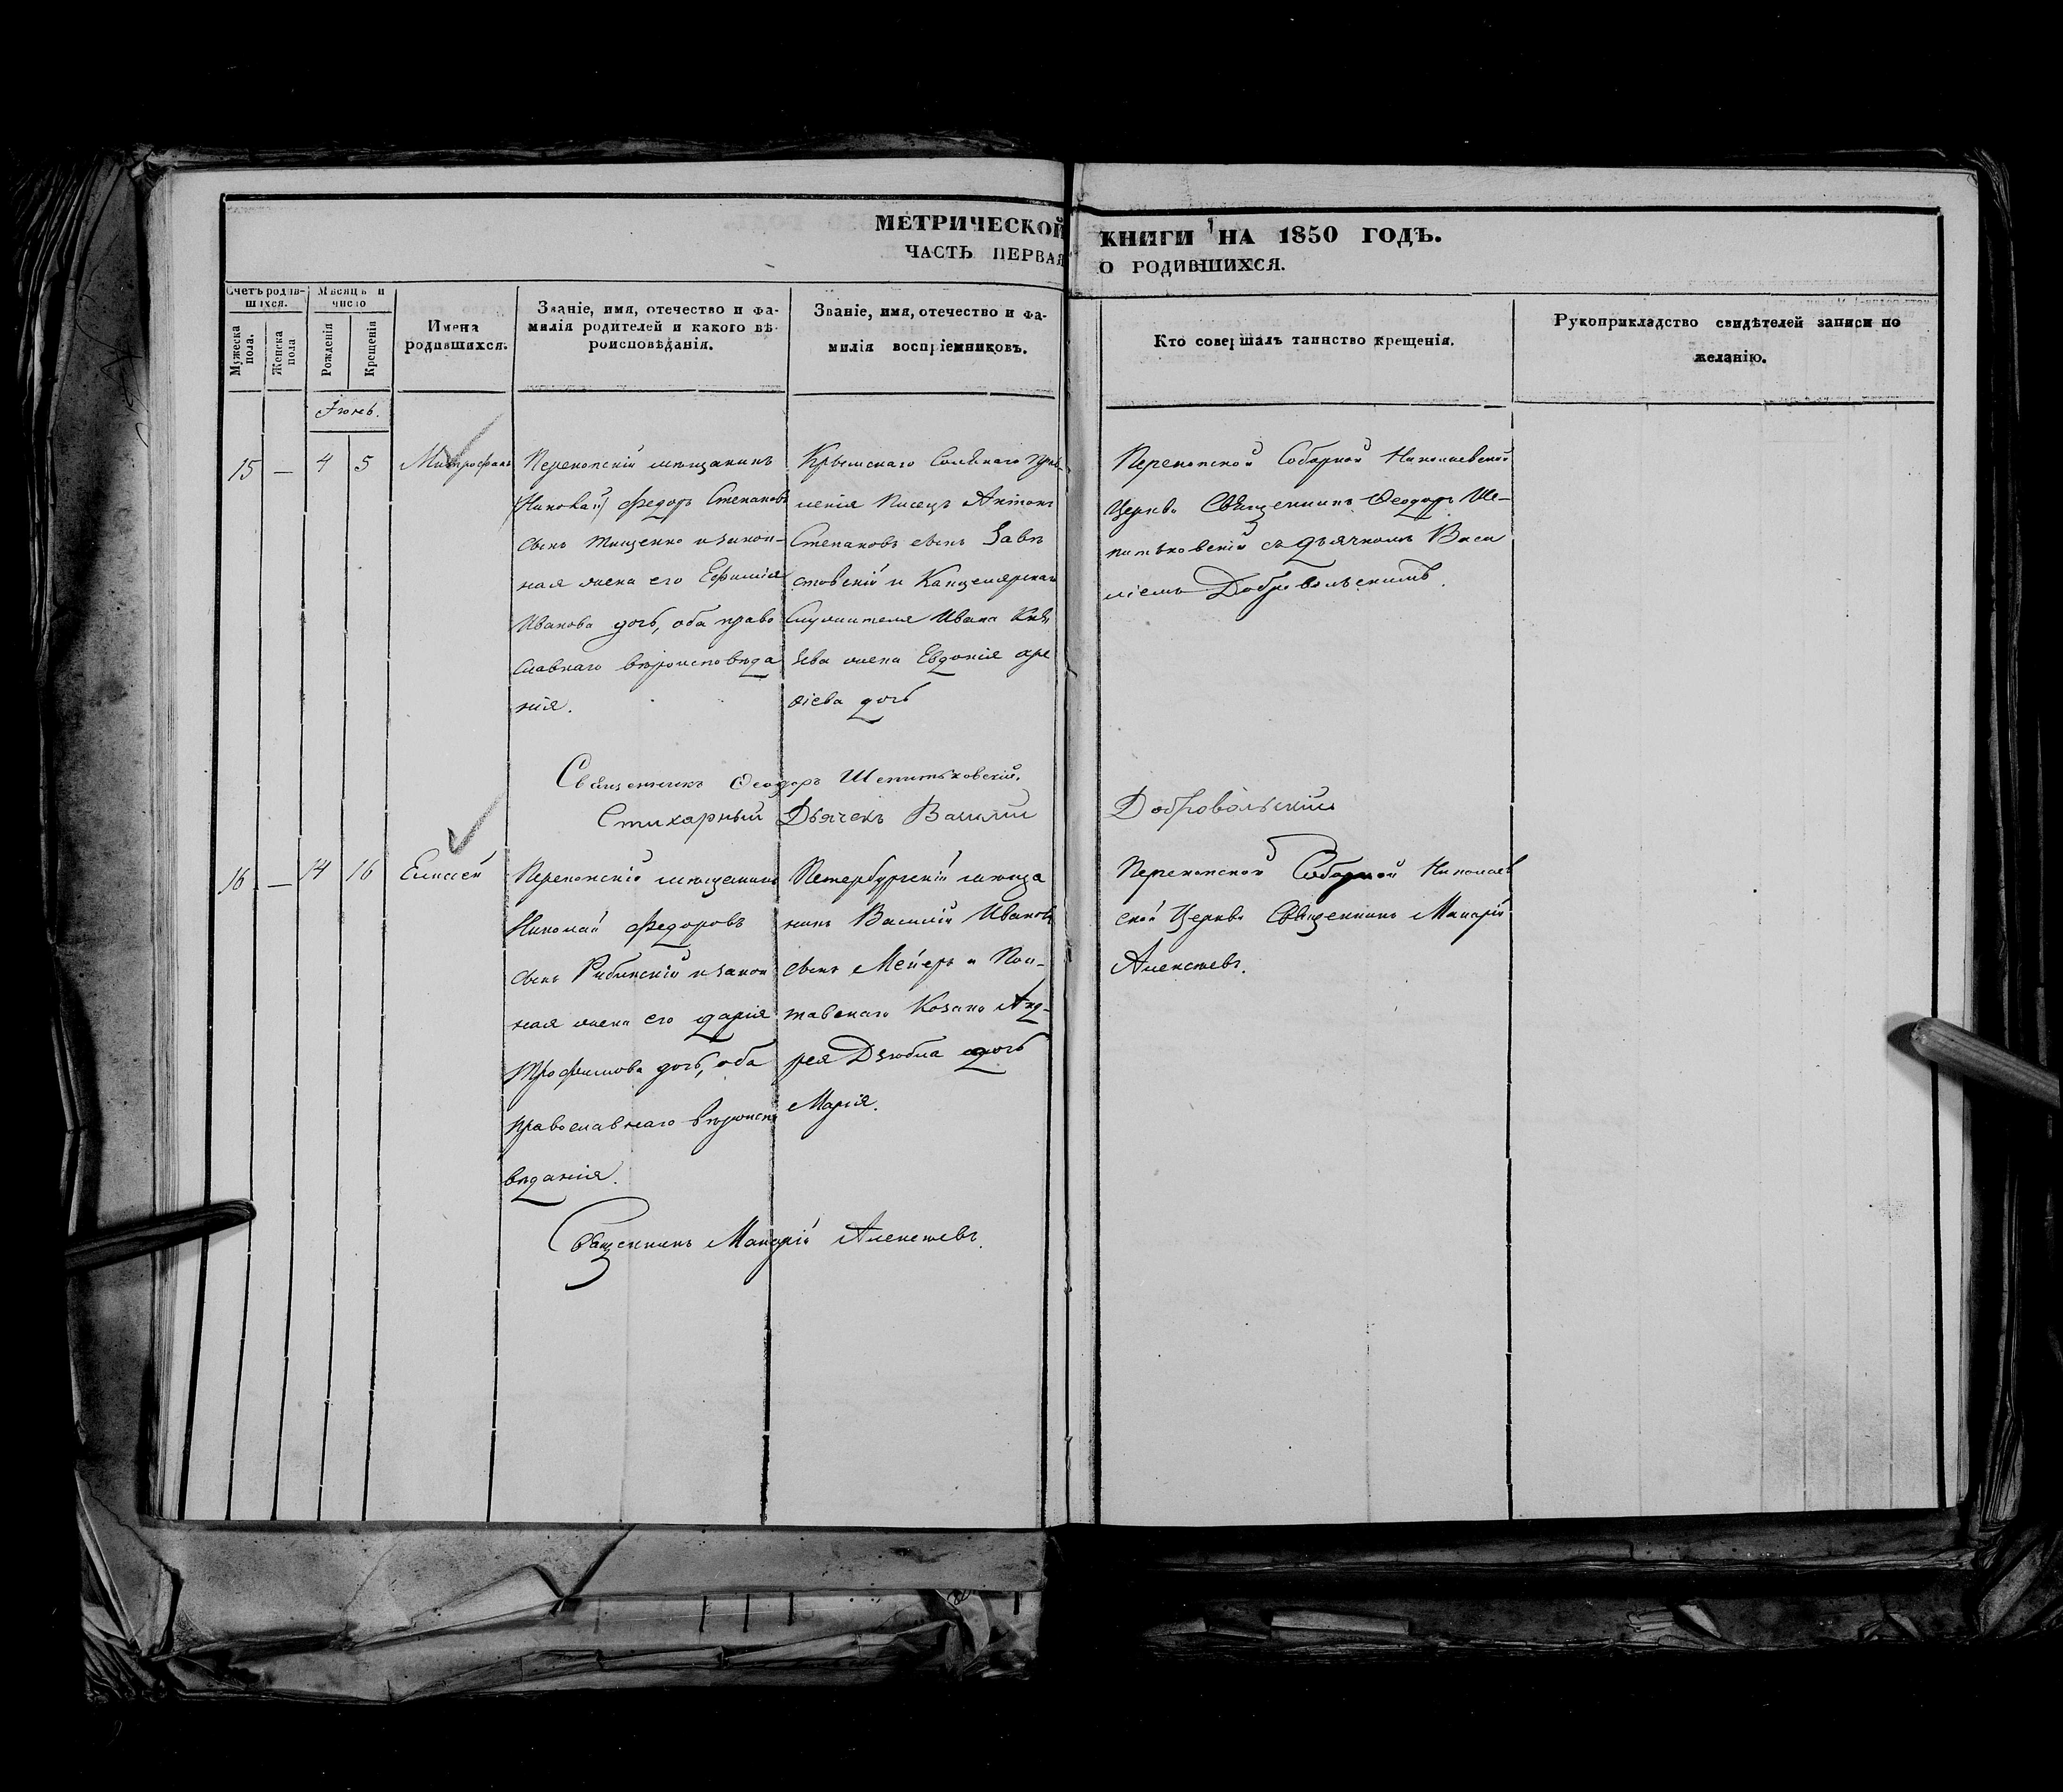 МЕТРИЧЕСКОЙ КНИГИ НА 1850 ГОДЪ.
ЧАСТЬ ПЕРВАЯ О РОДИВШИХСЯ.
Счетъ родившихся.
Мужеска пола.
Женска пола
Мѣсяцъ и число
Рожденія
Крещенія
Имена родившихся.
Званіе, имя, отечество и фа-
милія родителей и какого вѣ-
роисповѣданія.
Званіе, имя, отечество и фа-
милія воспріемниковъ.
Кто совершалъ таинство крещенія.
Рукоприкладство свидѣтелей записи по
желанію.
Іюнь.
15 — 4 5
Митрофанъ
Перекопскій мѣщанинъ
Федоръ Степановъ
сынъ Тищенко и закон-
ная жена его Ефимія
Иванова дочь, оба право
славнаго вѣроисповѣда
нія.
Крымскаго Солянаго Прав-
ленія писецъ Антонъ
Степановъ сынъ
и Канцелярскаго
Служителя Ивана
жена Евдокія
дочь
Перекопской Соборной Николаевской
Церкви Священникъ Ѳеодоръ Ше-
питьковскій съ дьячкомъ Васи
ліемъ Добровольскимъ.
Священникъ Ѳеодоръ Шепитьковскій.
Стихарный Дьячекъ Василій Добровольскій
16 — 14 16
Елисей
Перекопскій мѣщанинъ
Николай Федоровъ
сынъ Рибинскій и закон
ная жена его Дарія
Трофимова дочь, оба
православнаго вѣроиспо
вѣданія.
Петербургскій мѣща
нинъ Василій Ивановъ
сынъ Мейеръ и Пол-
тавскаго Козака Анд-
рея Дзюбла дочь
Марія.
Перекопской Соборной Николаев
ской Церкви Священникъ Макарій
Алексѣевъ.
Священникъ Макарій Алексѣевъ.